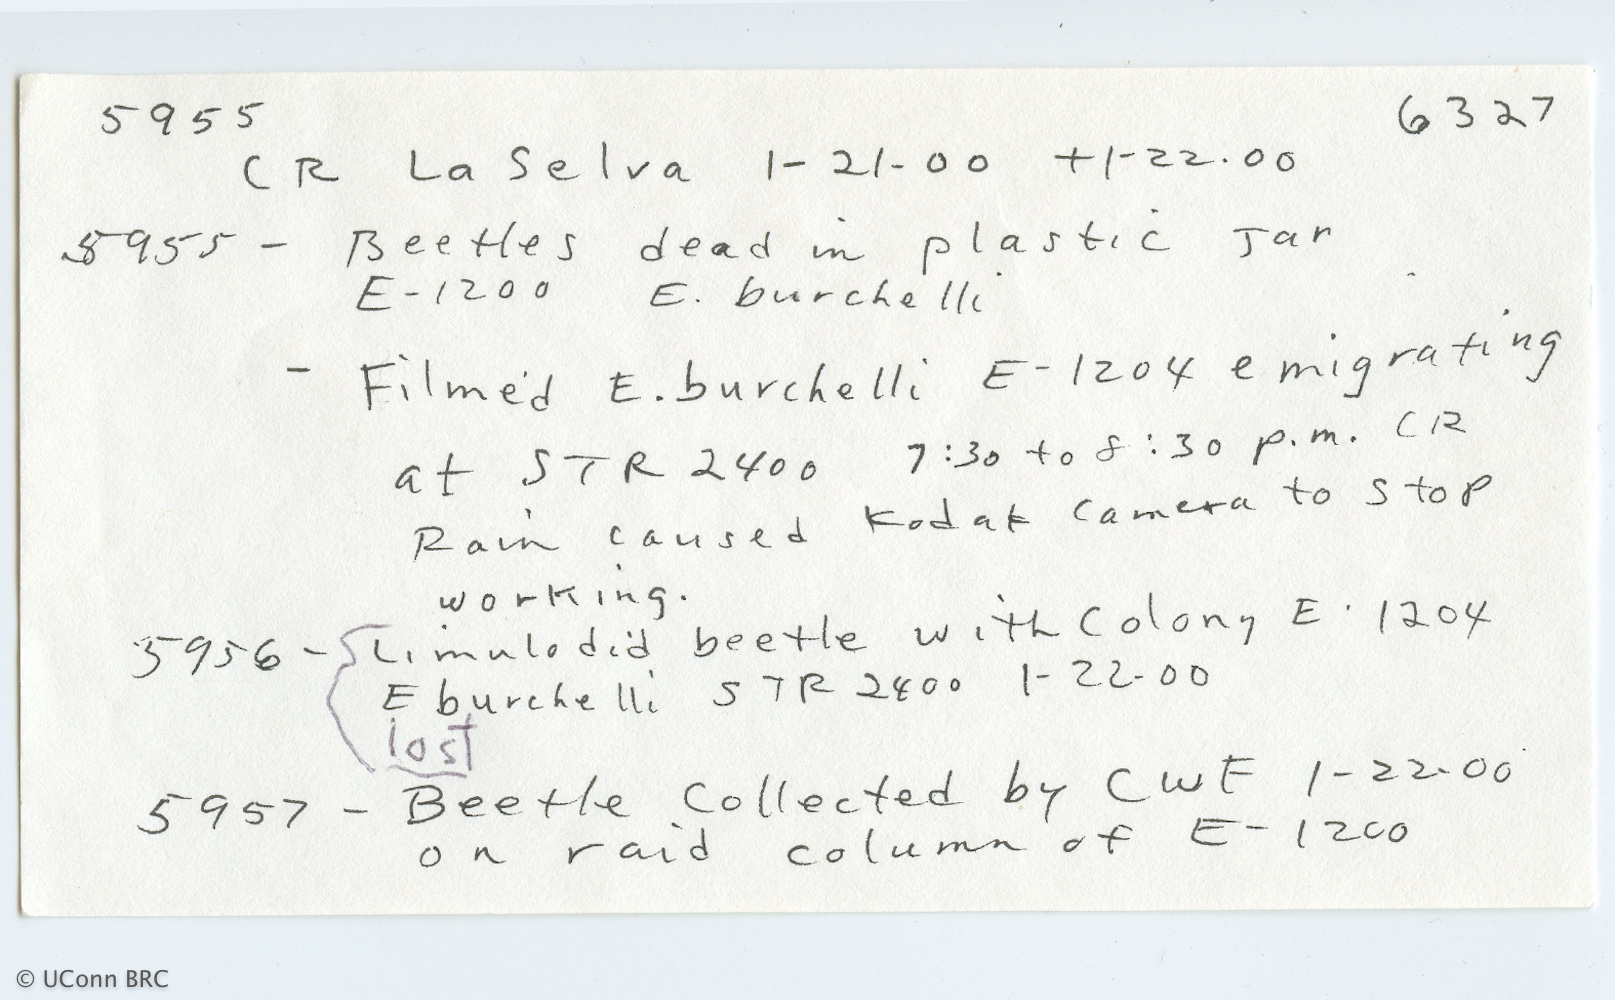 5955 6327
CR La Selva 1-21-00 +1-22-00
5955 - Beetles dead in plastic Jar
E-1200 E. burchelli
- Filmed E. burchelli E-1204 emigrating
at STR 2400 7:30 to 8:30 p.m. CR
Rain caused Kodak Camera to stop
working.
5956 - Limulodid beetle with Colony E-1204
E burchelli STR 2400 1-22-00
lost
5957 - Beetle Collected by CWE 1-22-00
on raid column of E-1200
© UConn BRC